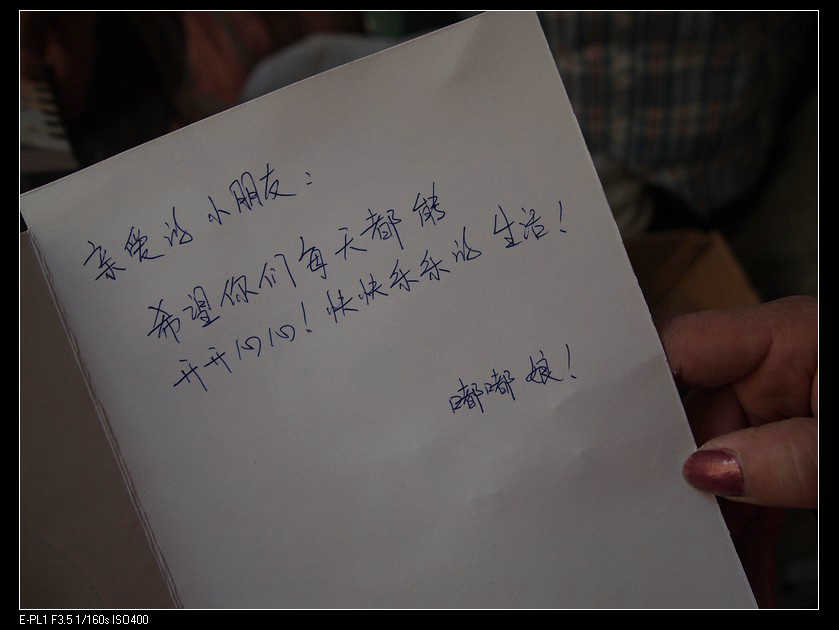 亲爱的小朋友：
希望你们每天都能
开开心心！快快乐乐的生活！
嘟嘟娘！
E-PL1 F3.5 1/160s ISO400